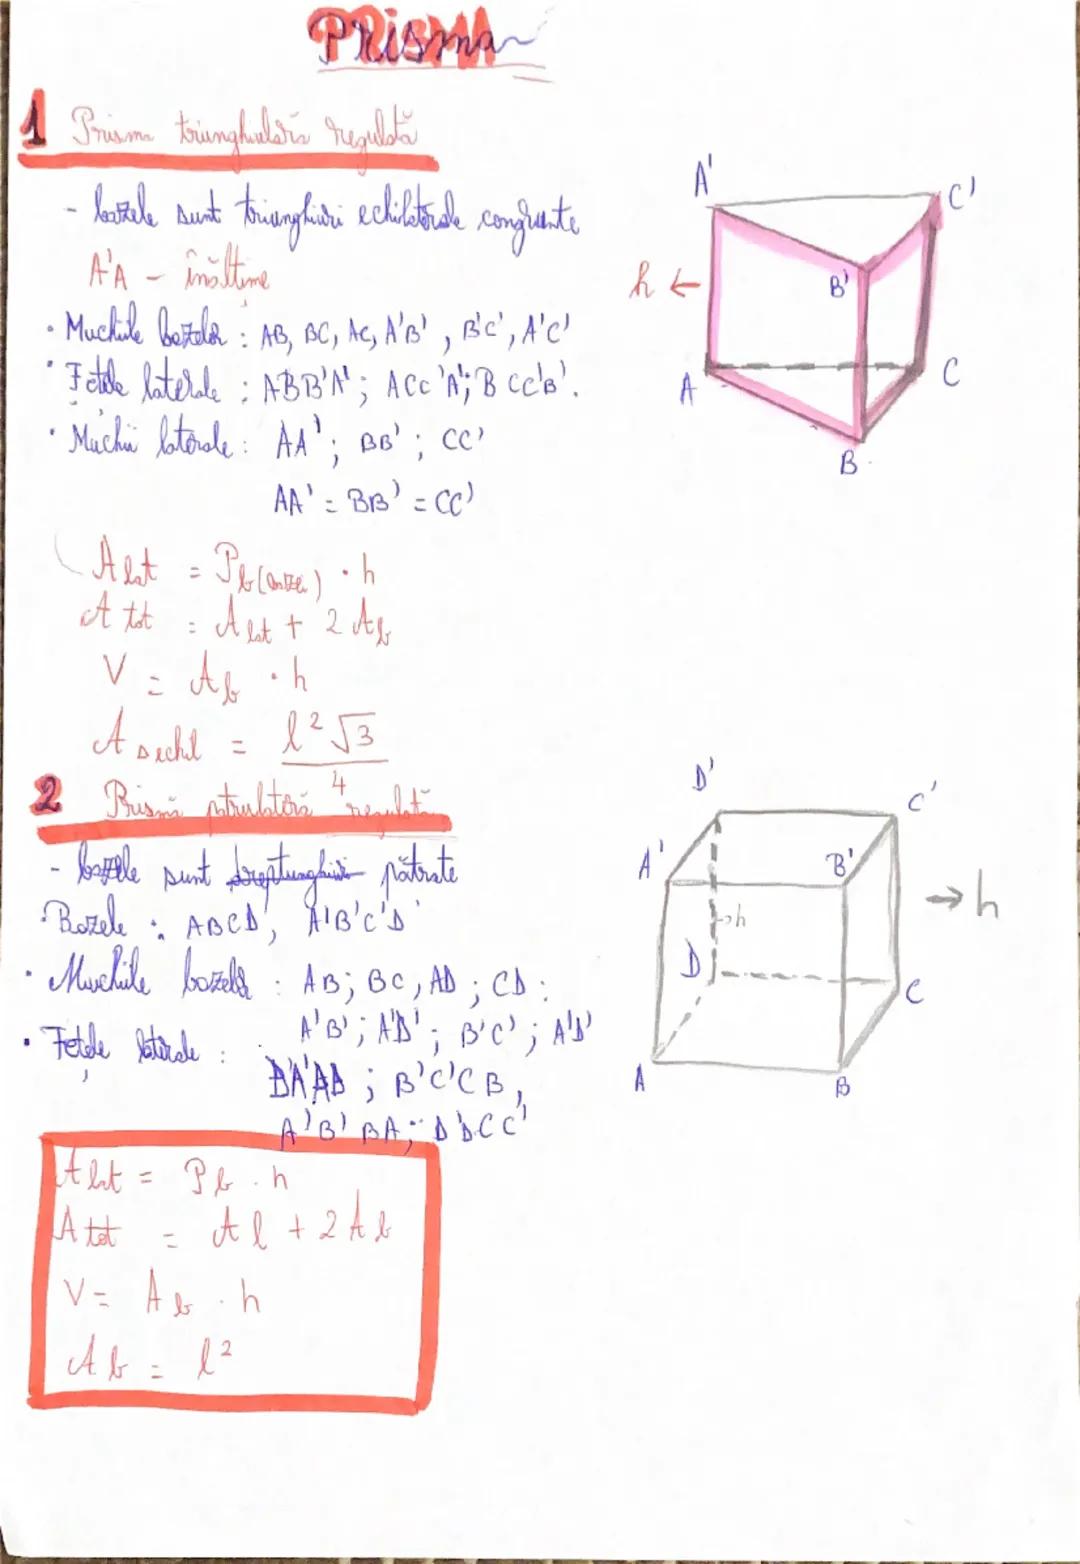 PRISMA
1 Prisma triunghiulară regulată
- bazele sunt triunghiuri echilaterale congruente
A'A - înălțime
• Muchiile bazelor : AB, BC, AC, A'B', B'C', A'C'
• Fețele laterale : ABB'A'; ACC'A'; BCC'B'.
• Muchii laterale : AA'; BB'; CC'
AA' = BB' = CC'
A lat = Pb(bazei) · h
A tot = A lat + 2 Ab
V = Ab · h
A Δ echil = l²√3 / 4
A'
C'
B'
h ←
A
C
B
2 Prismă patrulateră regulată
- bazele sunt dreptunghiuri pătrate
• Bazele : ABCD, A'B'C'D'
• Muchiile bazelor : AB; BC, AD; CD:
A'B'; A'D'; B'C'; A'D'
• Fețele laterale : D'A'AD; B'C'CB,
A'B'BA; D'DCC'
D'
C'
A'
B'
→ h
→h
D
C
A
B
A lat = Pb · h
A tot = Al + 2 Ab
V = Ab · h
Ab = l²